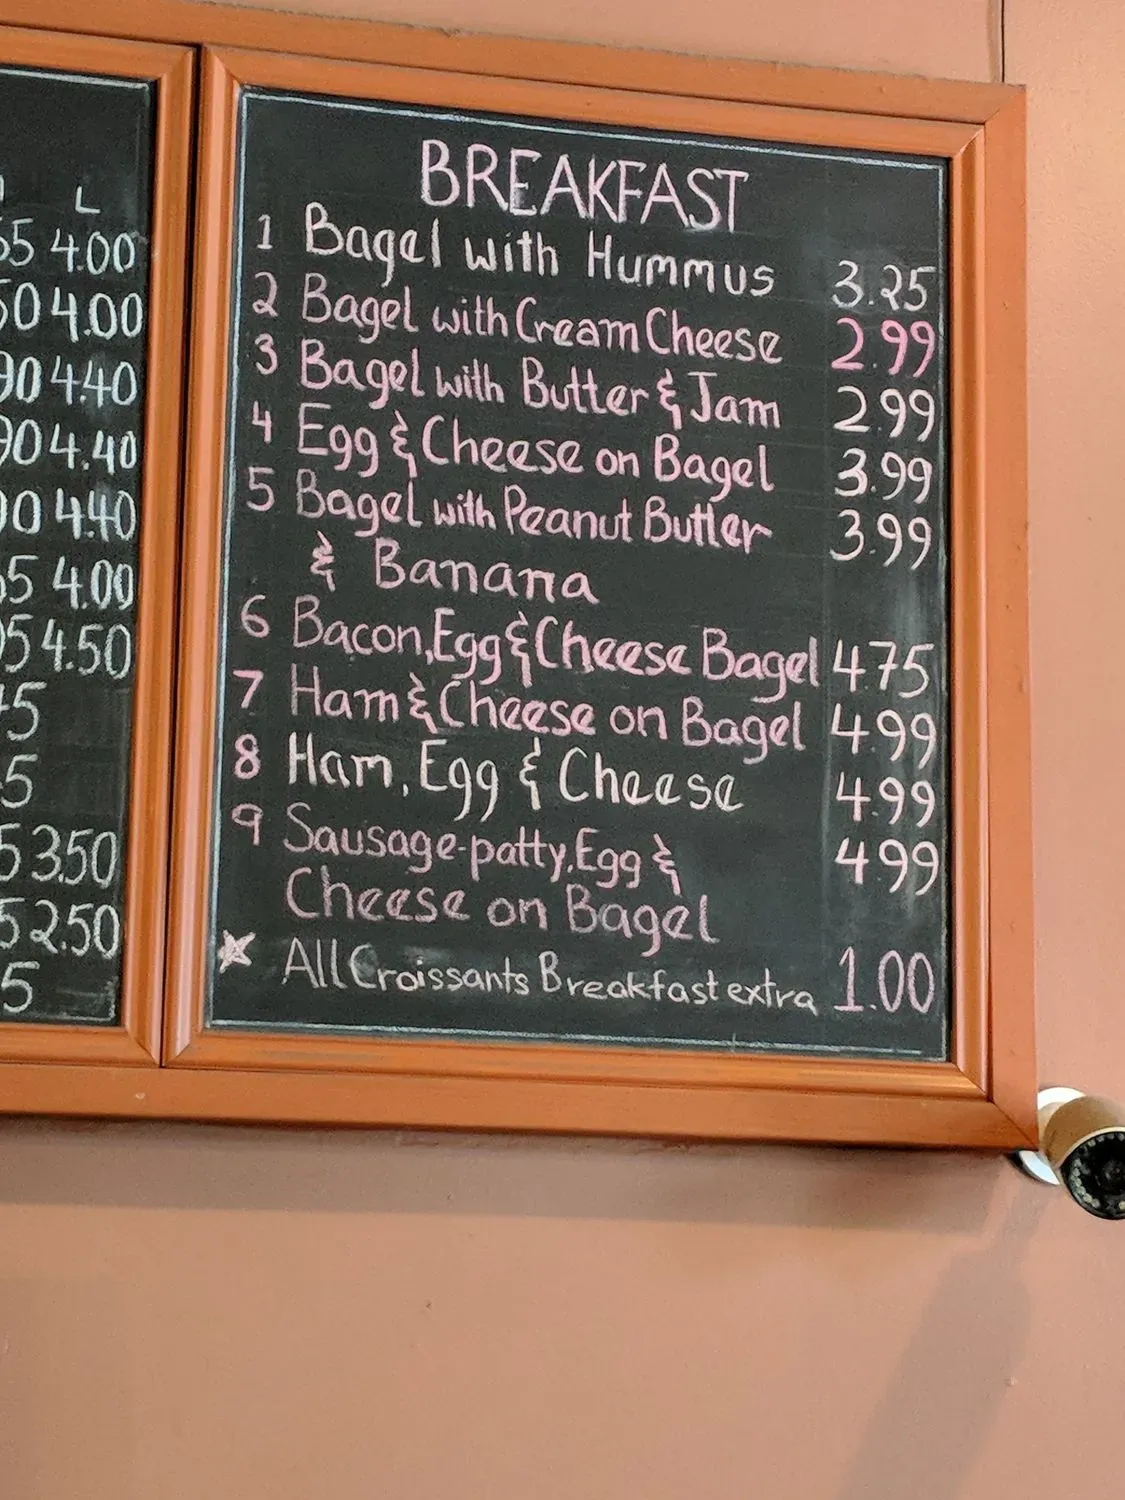 L
4.00
4.00
4.40
4.40
4.40
4.00
4.50
3.50
2.50
BREAKFAST
1 Bagel with Hummus 3.25
2 Bagel with Cream Cheese 2.99
3 Bagel with Butter & Jam 2.99
4 Egg & Cheese on Bagel 3.99
5 Bagel with Peanut Butter 3.99
& Banana
6 Bacon, Egg & Cheese Bagel 4.75
7 Ham & Cheese on Bagel 4.99
8 Ham, Egg & Cheese 4.99
9 Sausage-patty, Egg & 4.99
Cheese on Bagel
All Croissants Breakfast extra 1.00